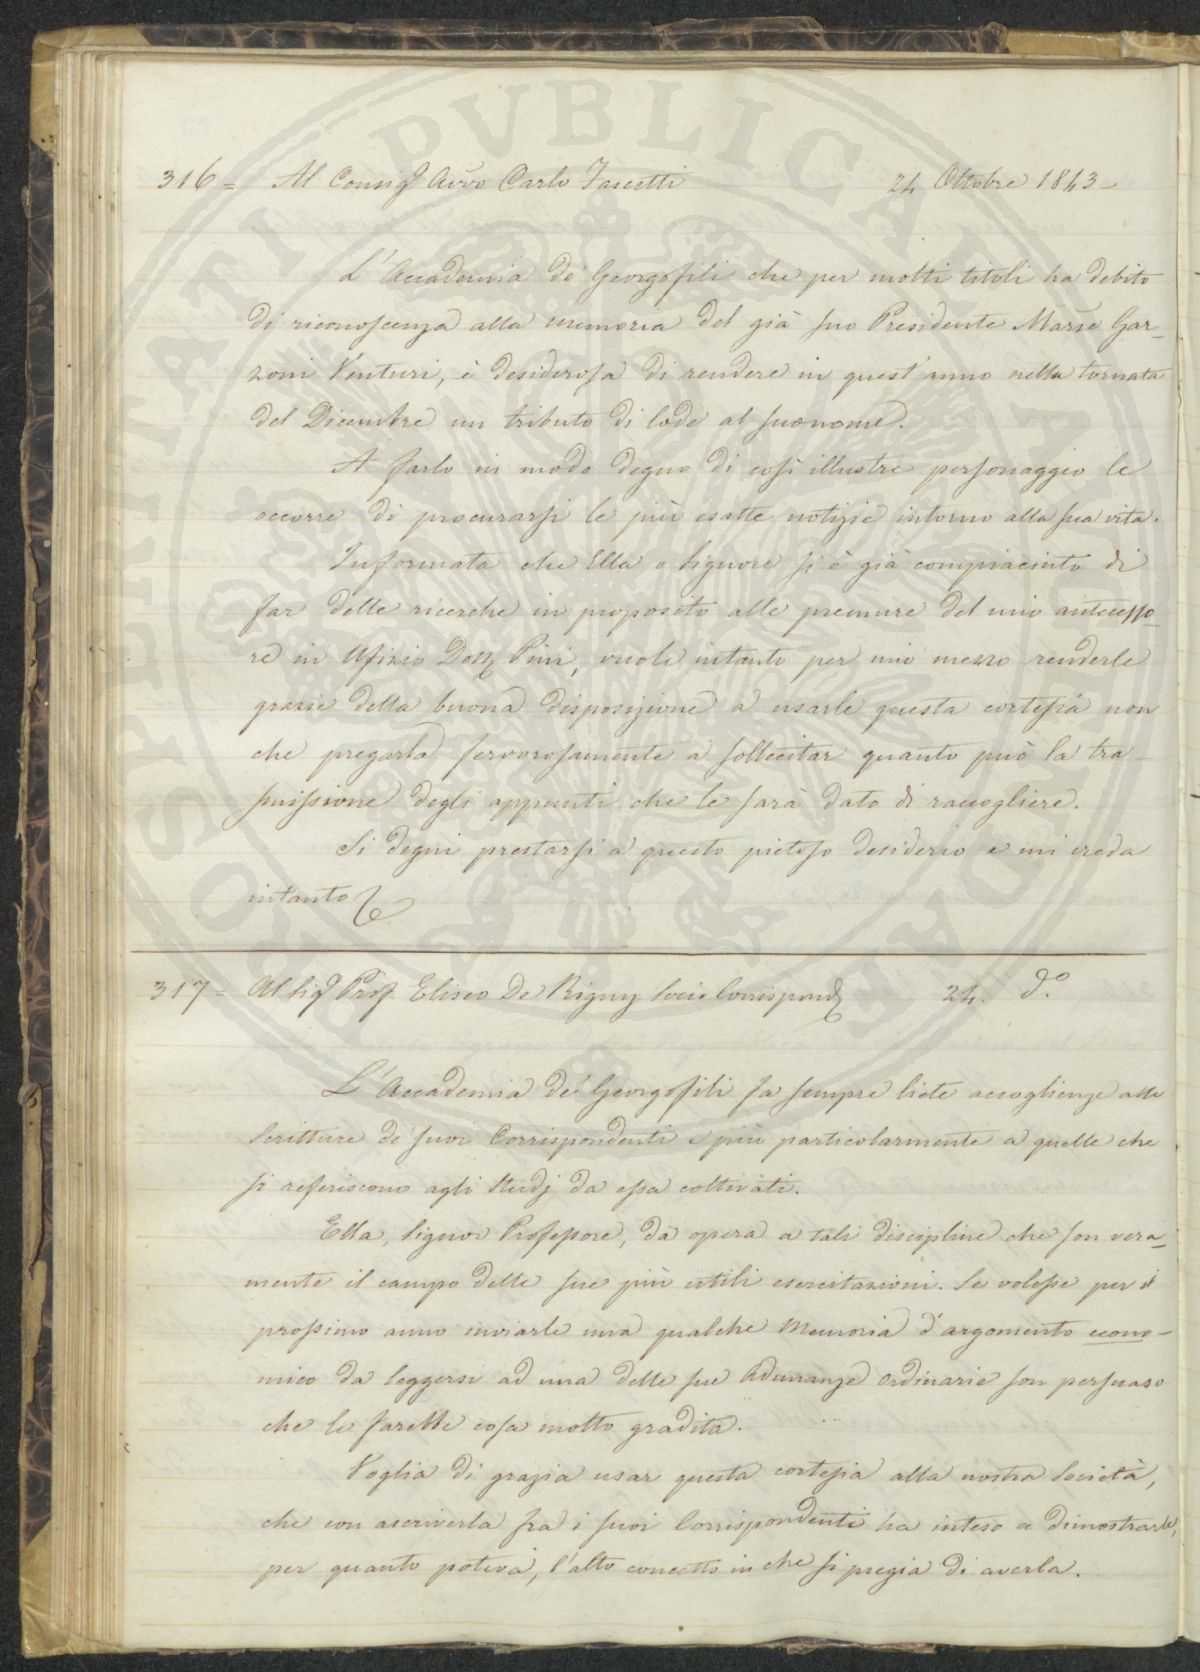 PROSPERITATI PUBLICAE AUGENDAE
316= Al Consig.r Avvo Carlo Fascetti 24 Ottobre 1843
L'Accademia de' Georgofili che per molti titoli ha debito
di riconoscenza alla memoria del già suo Presidente March.e Gar-
zoni Venturi, è desiderosa di rendere in quest'anno nella tornata
del Dicembre un tributo di lode al suo nome.
A farlo in modo degno di così illustre personaggio le
occorre di procurarsi le più esatte notizie intorno alla sua vita.
Informata che Ella o Signore si è già compiaciuto di
far delle ricerche in proposito alle premure del mio antecesso-
re in Ufizio Dott. Pini, vuole intanto per mio mezzo renderle
grazie della buona disposizione a usarle questa cortesia non
che pregarla fervorosamente a sollecitar quanto può la tra
smissione degli appunti che le sarà dato di raccogliere.
Si degni prestarsi a questo pietoso desiderio e mi creda
intanto
317= Al Sig.r Prof. Eliseo De Rigny Socio Corrispond. 24. d.o
L'Accademia de' Georgofili fa sempre liete accoglienze alle
Scritture de' suoi Corrispondenti e più particolarmente a quelle che
si referiscono agli Studj da essa coltivati.
Ella, Signor Professore, dà opera a tali discipline che son vera-
mente il campo delle sue più utili esercitazioni. Se volesse per il
prossimo anno inviarle una qualche Memoria d'argomento econo-
mico da leggersi ad una delle sue Adunanze Ordinarie son persuaso
che le farebbe cosa molto gradita.
Voglia di grazia usar questa cortesia alla nostra Società,
che con ascriverla fra i suoi Corrispondenti ha inteso a dimostrarle,
per quanto poteva, l'alto concetto in che si pregia di averla.